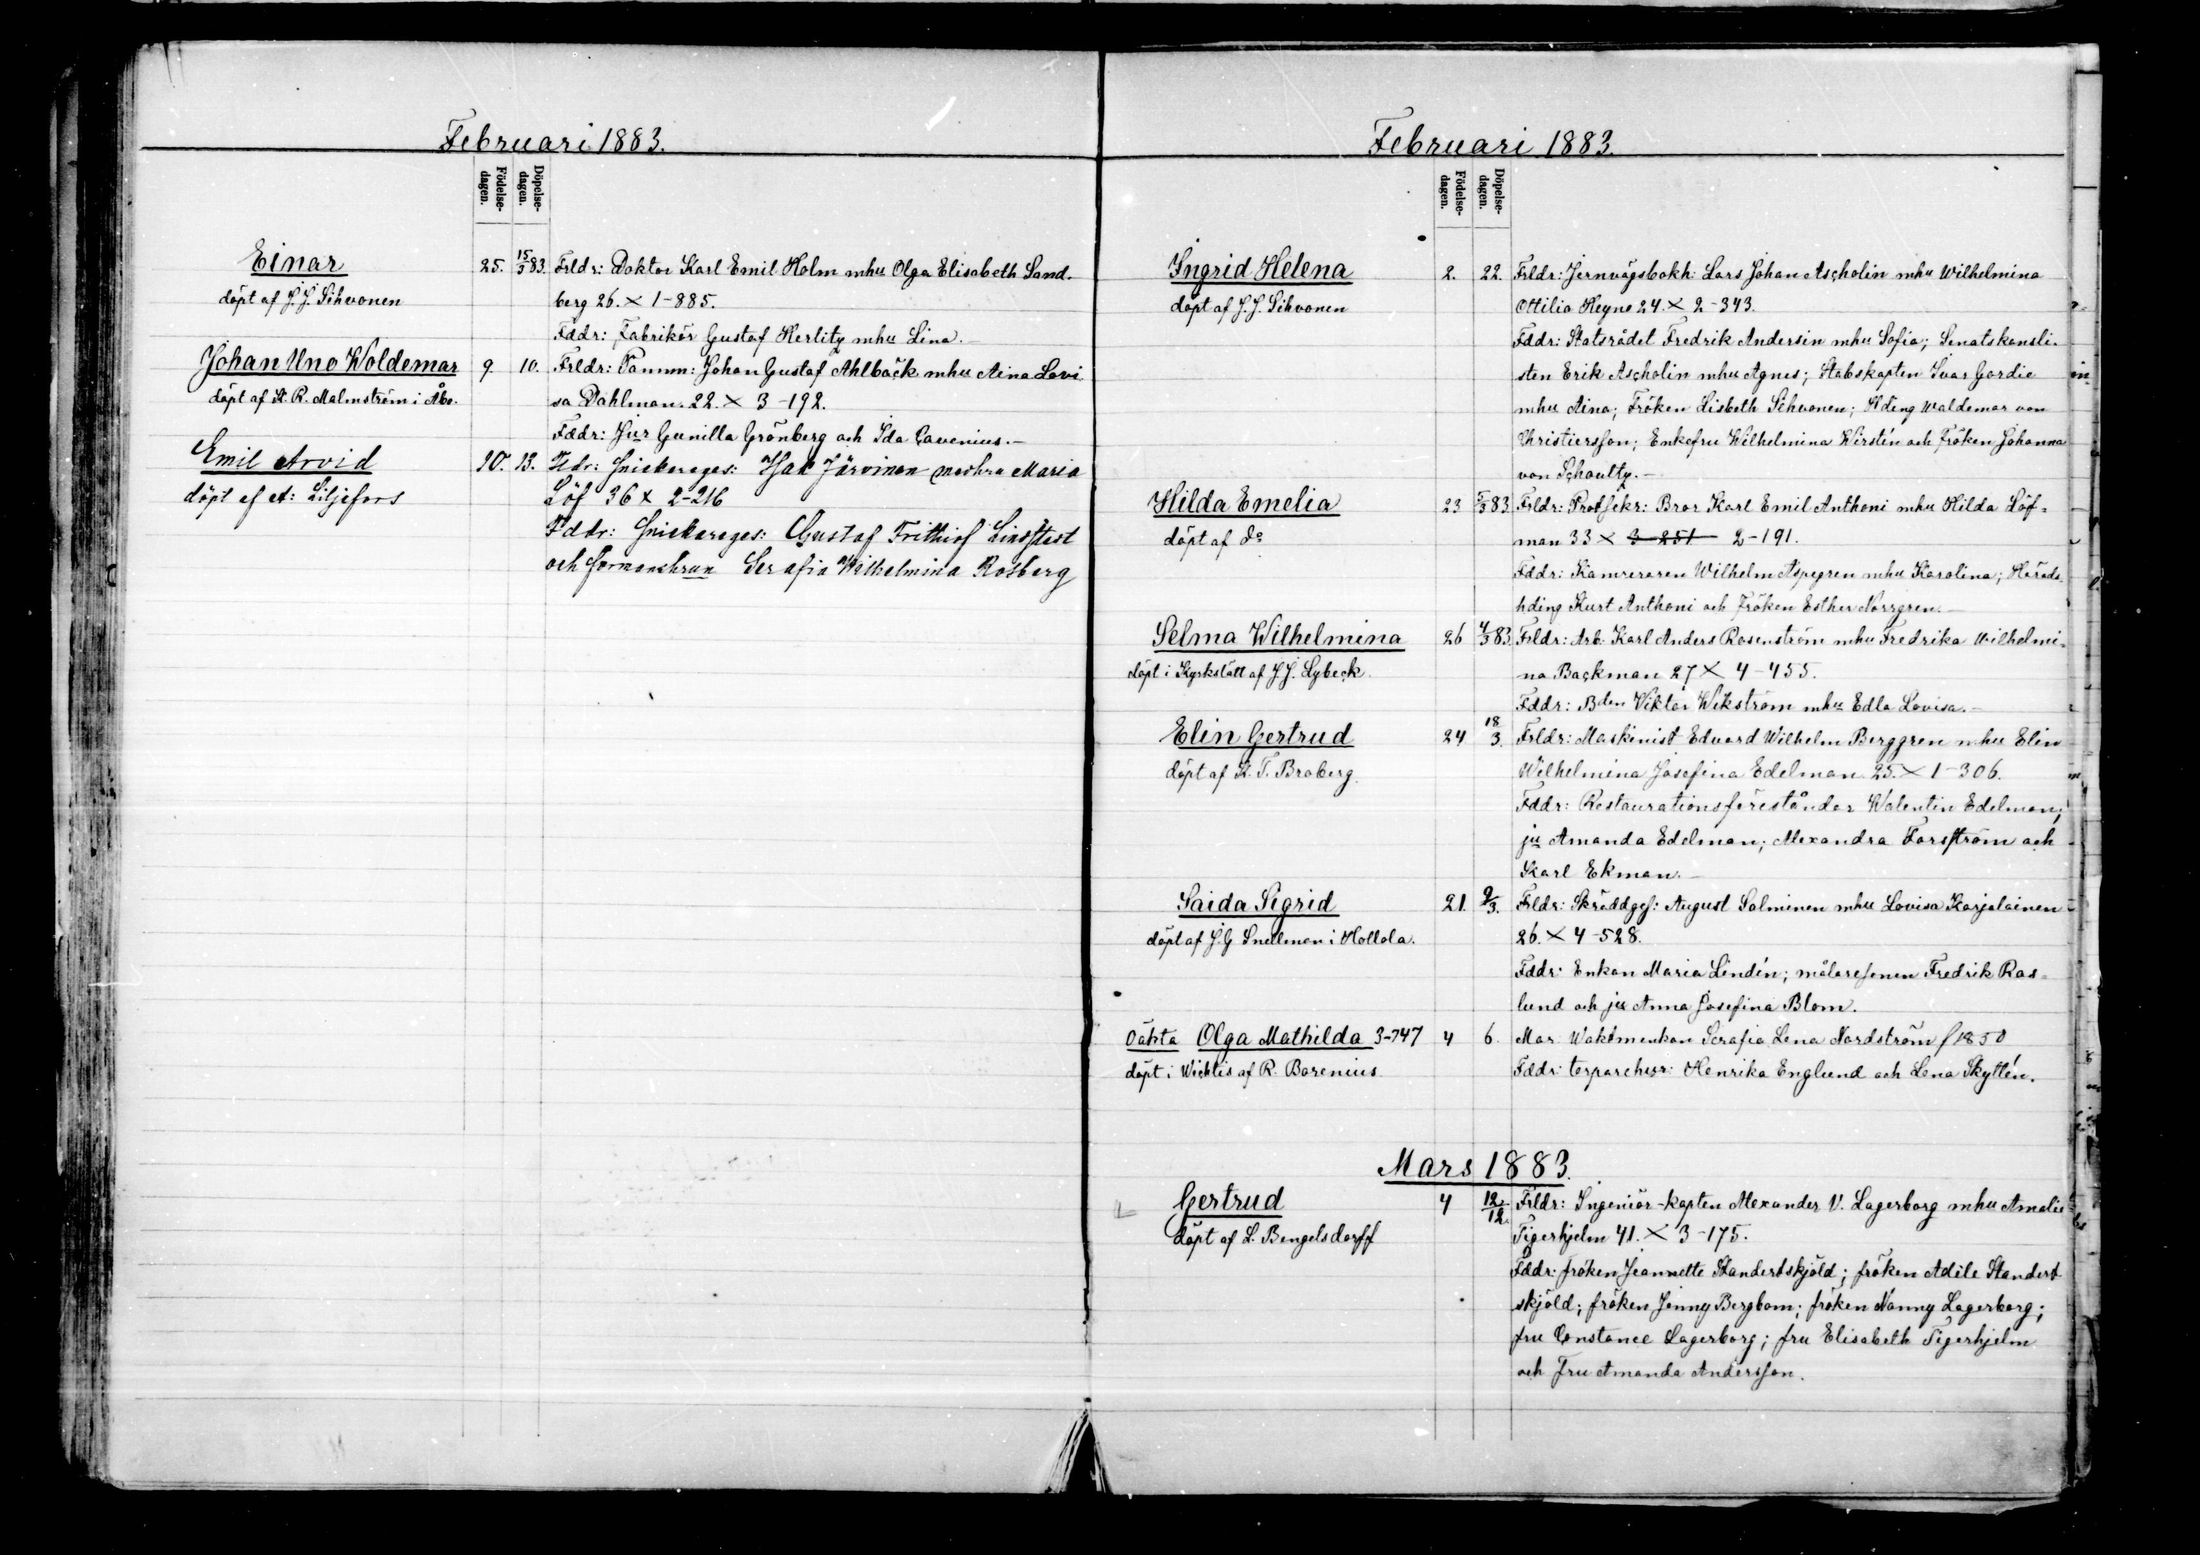 Februari 1883.
Födelse-
dagen.
Döpelse-
dagen.
Einar 25. 15/3 83. Frldr: Doktor Karl Emil Holm mhu Olga Elisabeth Sand-
döpt af J. J. Sihvonen berg 26. × 1-885.
Fddr: Fabrikör Gustaf Herlitz mhu Lina.—
Johan Uno Woldemar 9 10. Frldr: Tamm: Johan Gustaf Ahlbäck mhu Aina Lovi
döpt af K. R. Malmström i Åbo. sa Dahlman. 22. × 3-192.
Fddr: Jur Gunilla Grönberg och Ida Cavenius.—
Emil Arvid 10. 13. Fldr: Snickareges: Isak Järvinen medhru Maria
döpt af A: Liljefors Löf 36 × 2-216
Fddr: Snickareges: Gustaf Frithiof Lindstedt
och formanshrun Serafia Wilhelmina Rosberg
Februari 1883.
Födelse-
dagen.
Döpelse-
dagen.
Ingrid Helena 2. 22. Frldr: Jernvägsbokh: Lars Johan Ascholin mhu Wilhelmina
döpt af J. J. Sihvonen Ottilia Heyno 24. × 2-343.
Fddr: Statsrådet Fredrik Andersin mhu Sofia; Senatskansli-
sten Erik Ascholin mhu Agnes; Stabskapten Ivar Gordie
mhu Aina; Fröken Lisbeth Sihvonen; Hding Waldemar von
Christierson; Enkefru Wilhelmina Wirstén och Fröken Johanna
von Schoultz.—
Hilda Emelia 23 5/3 83. Frldr: Protsekr: Bror Karl Emil Anthoni mhu Hilda Löf-
döpt af do man 33 × 3-251 2-191.
Fddr: Kamreraren Wilhelm Aspegren mhu Karolina; Härads-
hding Kurt Anthoni och Fröken Esther Norrgren.—
Selma Wilhelmina 26 4/3 83. Frldr: Arb. Karl Anders Rosenström mhu Fredrika Wilhelmi-
döpt i Kyrkslätt af J. J. Lybeck. na Backman 27 × 4-455.
Fddr: Bden Viktor Wikström mhu Edla Lovisa.—
Elin Gertrud 24 18/3. Frldr: Maskinist Edvard Wilhelm Berggren mhu Elin
döpt af K. T. Broberg. Wilhelmina Josefina Edelman. 25. × 1-306.
Fddr: Restaurationsföreståndar Walentin Edelman;
ju Amanda Edelman; Alexandra Forsström och
Karl Ekman.—
Saida Sigrid 21. 9/3. Frldr: Skräddges: August Salminen mhu Lovisa Karjalainen
döpt af J. G Snellman i Hollola. 26. × 4-528.
Fddr: Enkan Maria Lindén; målaresonen Fredrik Ros-
lund och ju Anna Josefina Blom.
Oäkta Olga Mathilda 3-747 4 6. Mor: Waktmenkan Serafia Lena Nordström f 1850
döpt i Wichtis af R. Borenius. Fddr: torparehur: Henrika Englund och Lena Skyttén.
Mars 1883.
Gertrud 4 12/12. Frldr: Ingeniör-kapten Alexander V. Lagerborg mhu Amalie
döpt af L. Bengelsdorff Tigerhjelm 41. × 3-175.
Fddr: fröken Jeannette Standertskjöld; fröken Adèle Standert
skjöld; fröken Jenny Bergbom; fröken Nanny Lagerborg;
fru Constance Lagerborg; fru Elisabeth Tigerhjelm
och Fru Amanda Andersson.